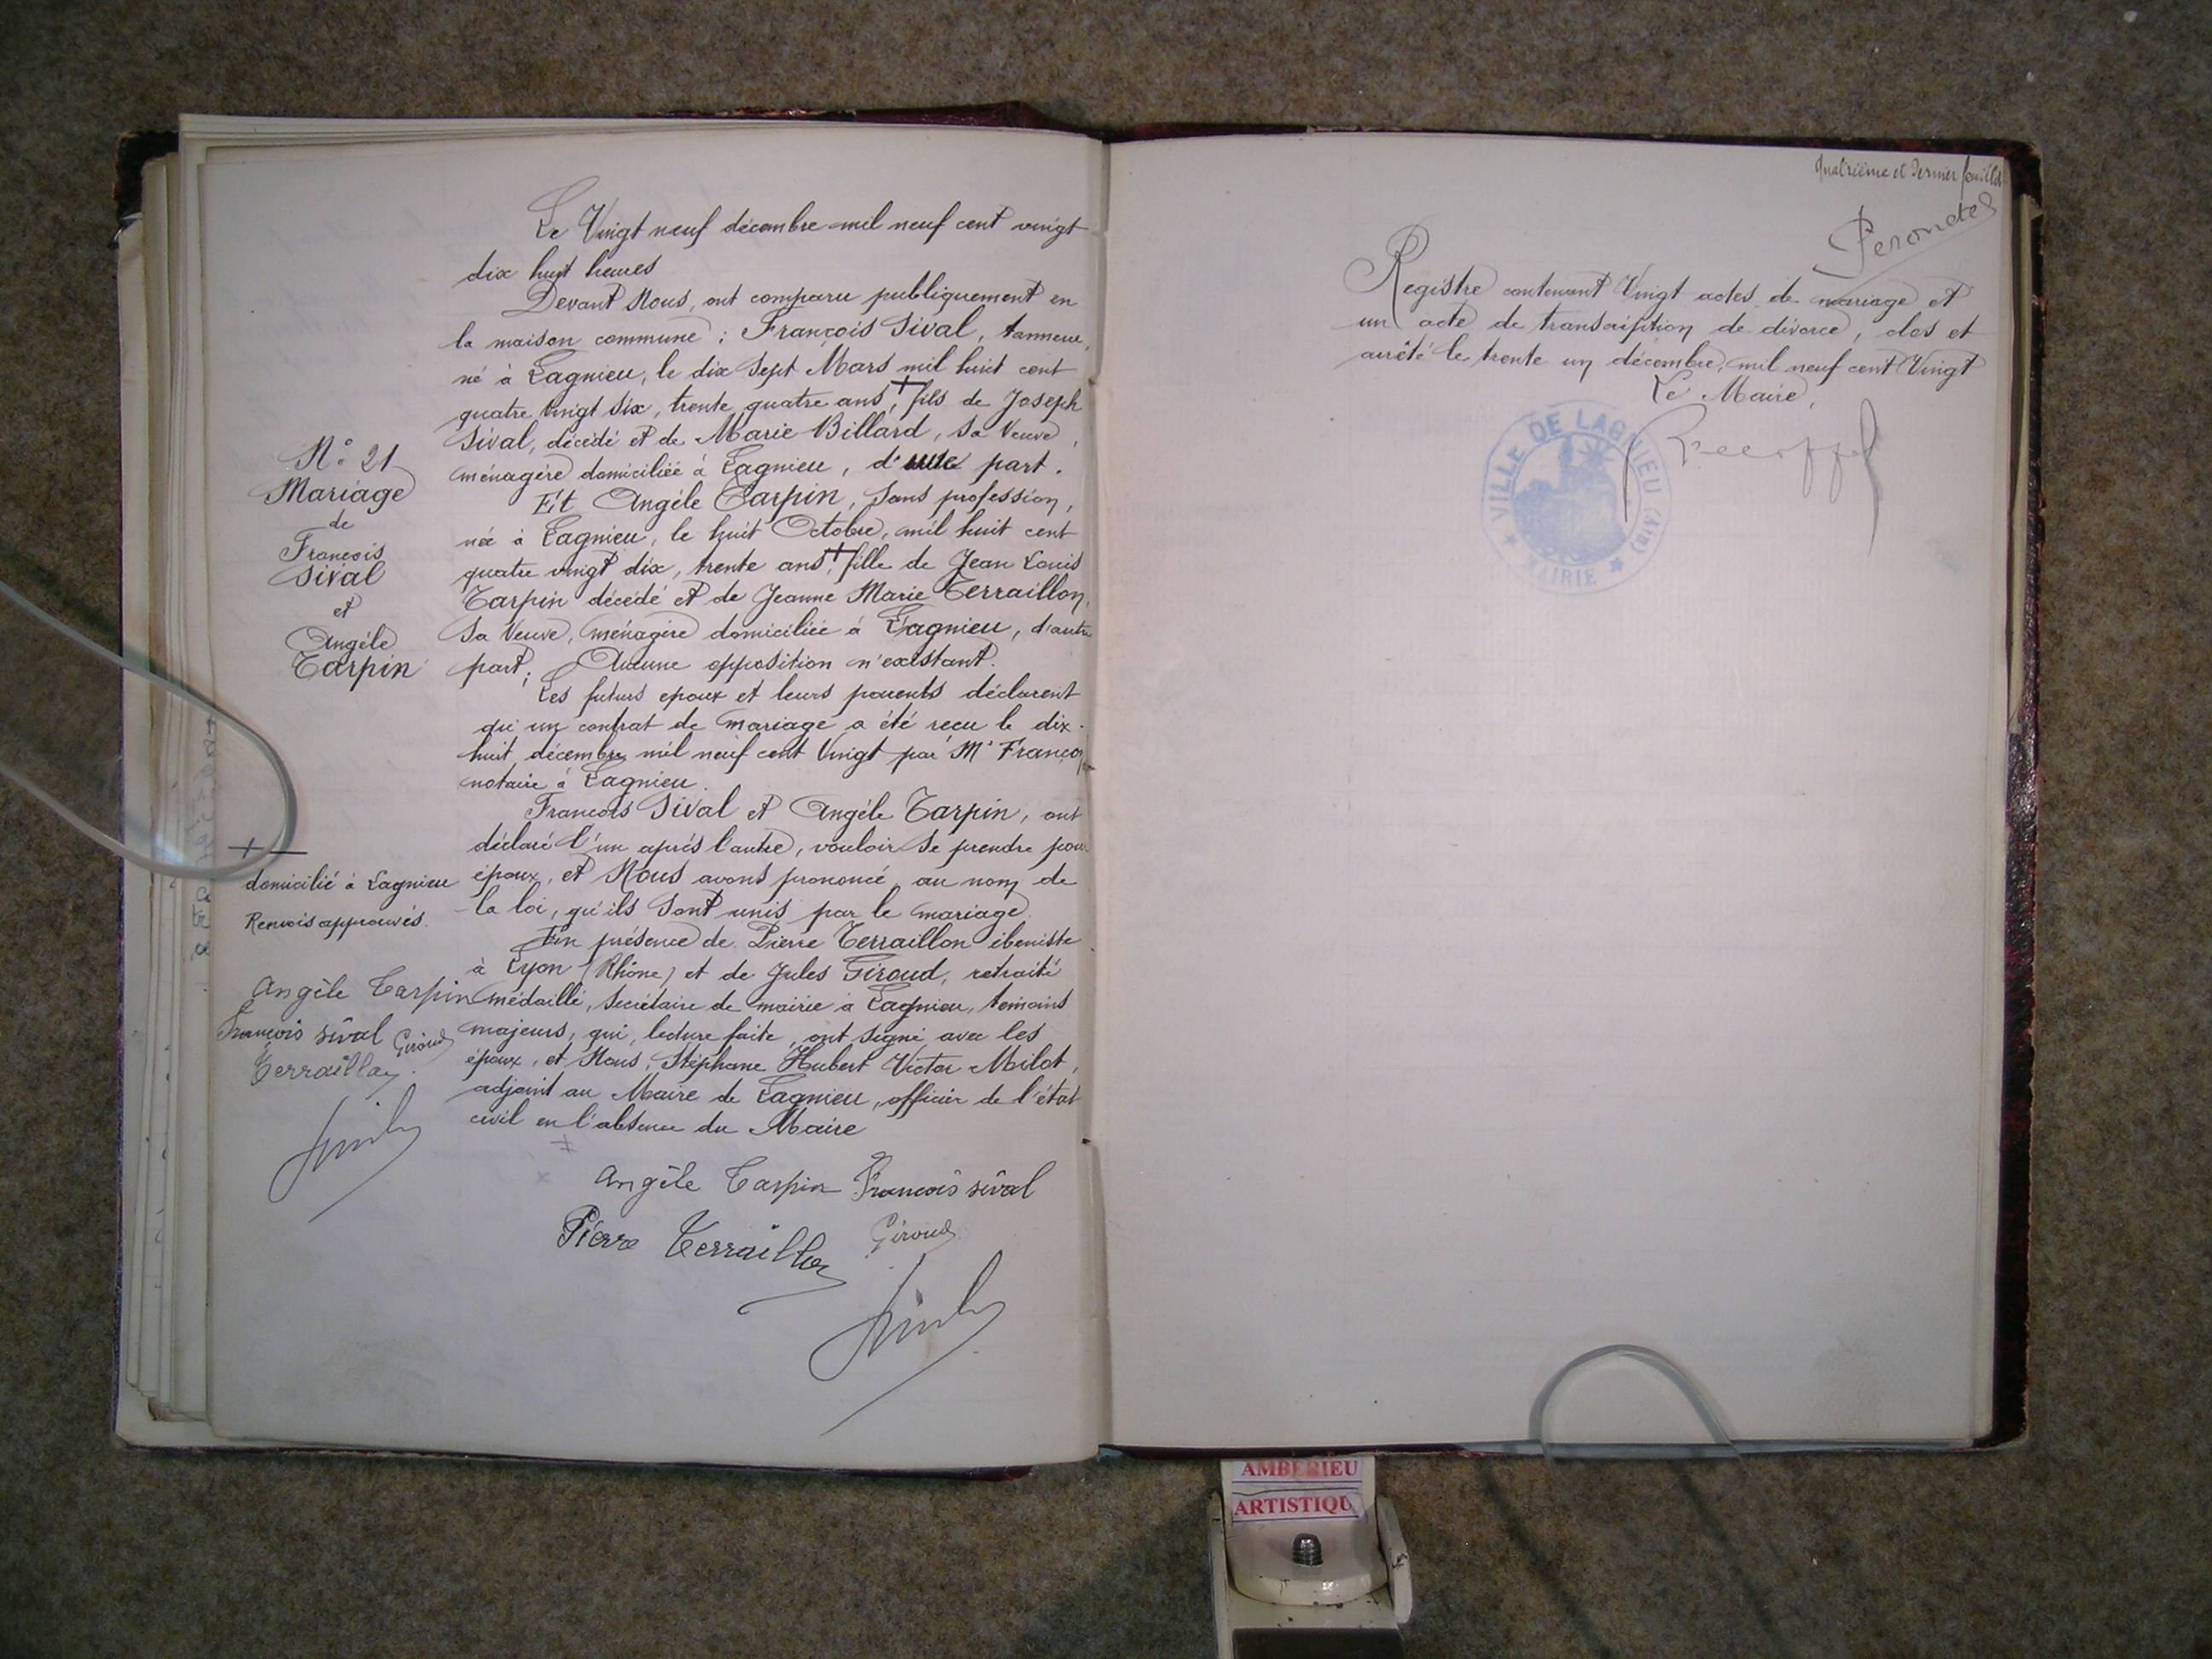 Le Vingt neuf décembre mil neuf cent vingt
dix huit heures
Devant Nous, ont comparu publiquement en
la maison commune : François Sival, tanneur,
né à Lagnieu, le dix Sept Mars mil huit cent
quatre vingt Six, trente quatre ans, + fils de Joseph
Sival, décédé et de Marie Billard, Sa Veuve,
ménagère domiciliée à Lagnieu, d'une part.
Et Angèle Tarpin, Sans profession,
née à Lagnieu, le huit Octobre, mil huit cent
quatre vingt dix, trente ans, + fille de Jean Louis
Tarpin décédé et de Jeanne Marie Terraillon,
Sa Veuve, ménagère domiciliée à Lagnieu, d'autre
part; Aucune opposition n'existant.
Les futurs epoux et leurs parents déclarent
qu'un contrat de mariage a été reçu le dix-
huit décembre mil neuf cent Vingt par Me Françon
notaire à Lagnieu.
François Sival et Angèle Tarpin, ont
déclaré l'un après l'autre, vouloir Se prendre pour
époux, et Nous avons prononcé au nom de
la loi, qu'ils Sont unis par le mariage.
En présence de Pierre Terraillon ébeniste
à Lyon (Rhône) et de Jules Giroud, retraité
médaillé, Secrétaire de mairie à Lagnieu, témoins
majeurs, qui, lecture faite, ont Signé avec les
époux, et Nous, Stéphane Hubert Victor Milot,
adjoint au Maire de Lagnieu, officier de l'état
civil en l'absence du Maire
Angèle Tarpin François sival
Pierre Terraillon Giroud
N° 21
Mariage
de
François
Sival
et
Angèle
Tarpin
+
domicilié à Lagnieu
Renvois approuvés.
Angèle Tarpin
François sival Giroud
Terraillon
Quatrième et Dernier feuillet
Registre contenant Vingt actes de mariage et
un acte de transcription de divorce, clos et
arrêté le trente un décembre, mil neuf cent Vingt
Le Maire,
VILLE DE LAGNIEU (AIN)
* MAIRIE *
AMBERIEU
ARTISTIQU